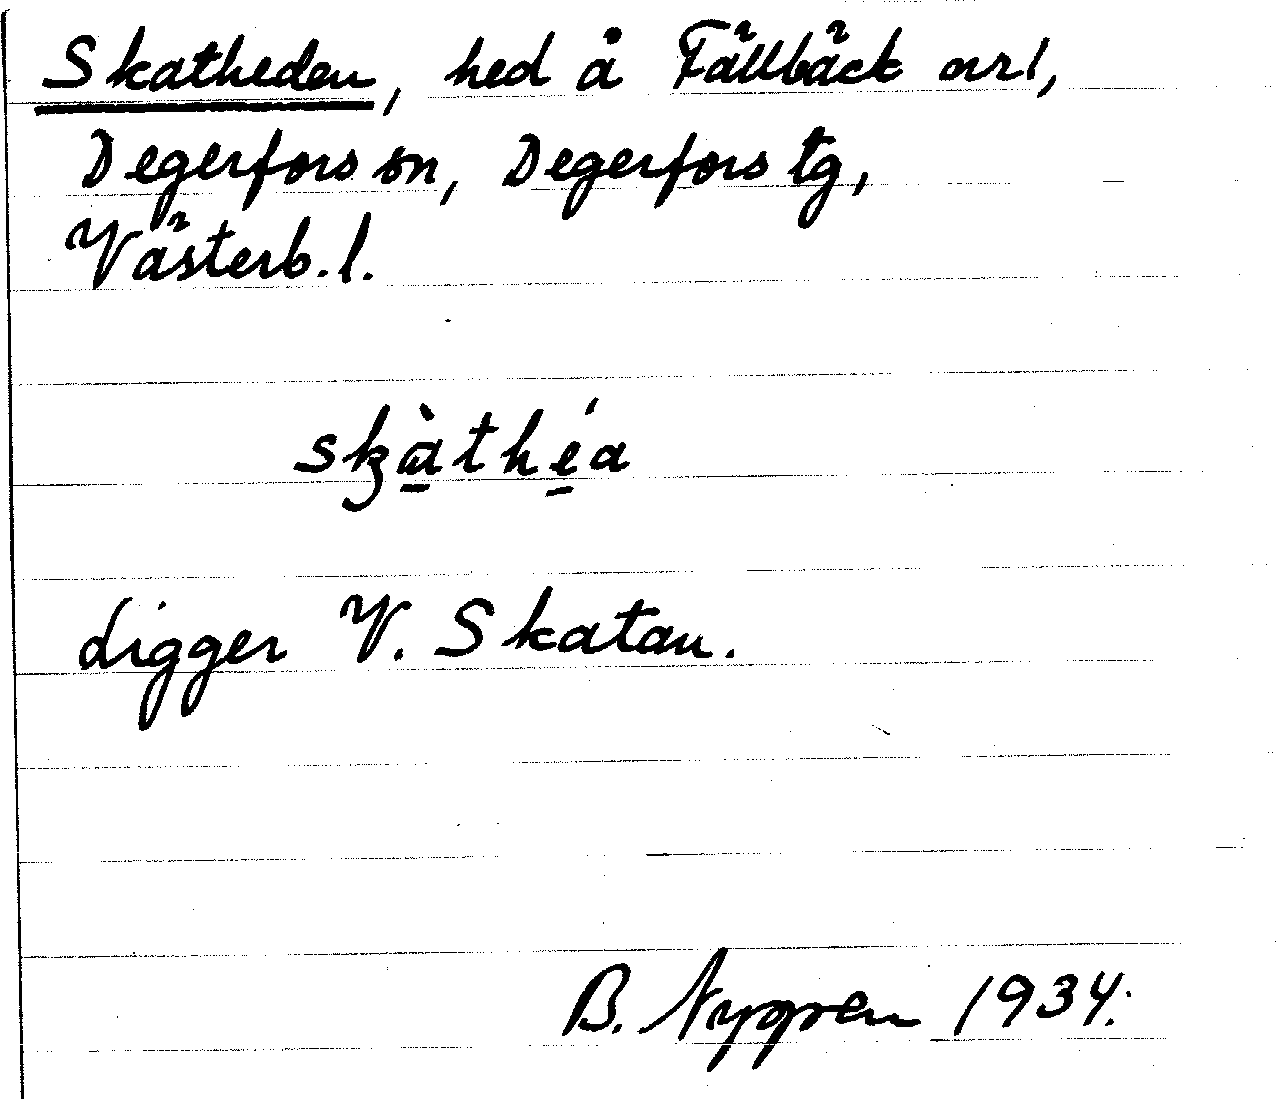 Skatheden, hed å Fällbäck avrl,
Degerfors sn, Degerfors tg,
Västerb. l.
skàthéa
Ligger V. Skatan.
B. Nygren 1934.